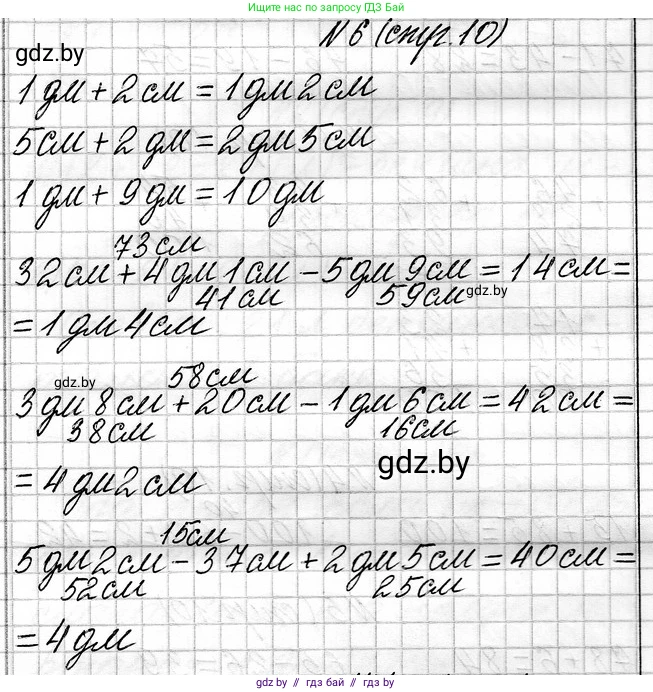 Ищите нас по запросу ГДЗ Бай
gdz.by
N 6 (стр. 10)
1 дм + 2 см = 1 дм 2 см
5 см + 2 дм = 2 дм 5 см
1 дм + 9 дм = 10 дм
73 см
32 см + 4 дм 1 см - 5 дм 9 см = 14 см =
41 см 59 см gdz.by
= 1 дм 4 см
gdz.by 58 см
3 дм 8 см + 20 см - 1 дм 6 см = 42 см =
38 см 16 см
gdz.by
= 4 дм 2 см
15 см
5 дм 2 см - 37 см + 2 дм 5 см = 40 см =
52 см 25 см
= 4 дм
gdz.by // gdz.by // gdz.by